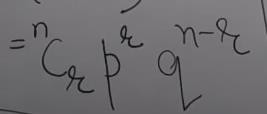 = ⁿCᵣ pʳ qⁿ⁻ʳ